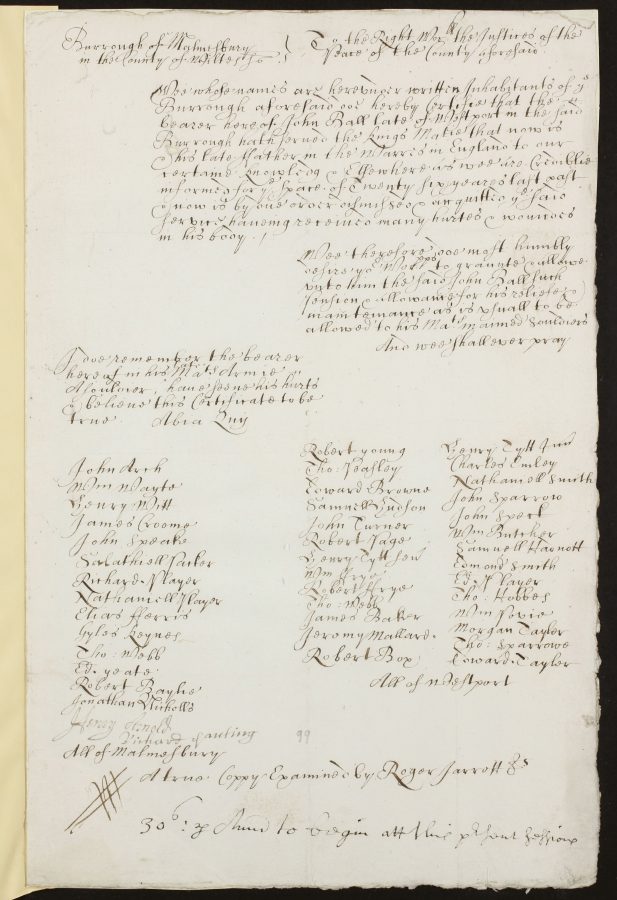 Burrough of Malmesbury
in the County of Wiltes
To the Right Wor.ll the Justices of the
Peace of the County aforesaid
Wee whose names are hereunder written Inhabitants of ye
Burrough aforesaid doe hereby Certifie that the
bearer hereof John Ball late of Westport in the said
Burrough hath served the Kings Ma:tie that now is
& his late ffather in the Warres in England to our
certaine knowledg & Elsewhere as wee are Credible
informed for ye space of Twenty six yeares last past
& now is by due order dismissed & acquitted ye said
service haveing received many hurtes & woundes
in his body.
Wee therefore doe most humbly
desire yor Worpps to graunte & allowe
unto him the said John Ball such
Pension & allowance for his reliefe &
maintenance as is usuall to be
allowed to his Mats maimed Souldiers
And wee shall ever pray
I doe remember the bearer
hereof in his Mats Armie
A souldier, have seene his hurts
& believe this Certificate to be
true. Abia Quy
John Arch
Wm Wayte
Henry Witt
James Croome
John Speake
Salathiell Packer
Richard Player
Nathaniell Player
Elias fferris
Gyles Keynes
Tho: Webb
Ed. yeate
Robert Baylie
Jonathan Nicholls
Henry Arnold
Richard Pauling
All of Malmesbury
Robert young
Tho: Peasley
Edward Browne
Samuell Hudson
John Turner
Robert Page
Henry Tytt sen
Wm ffrye
Robert ffrye
Tho: Webb
James Baker
Jeromy Mallard.
Robert Box
Henry Tytt Jun
Charles Emley
Nathaniell Smith
John Sparrow
John Speck
Wm Butcher
Samuell
Edmond Smith
Ed: Player
Tho: Hobbes
Wm
Morgan Tayler
Tho: Sparrowe
Edward Tayler
All of Westport
99
A true Coppy Examined by Roger Jarrott
30s: p Annu to begin att this psent Sessions